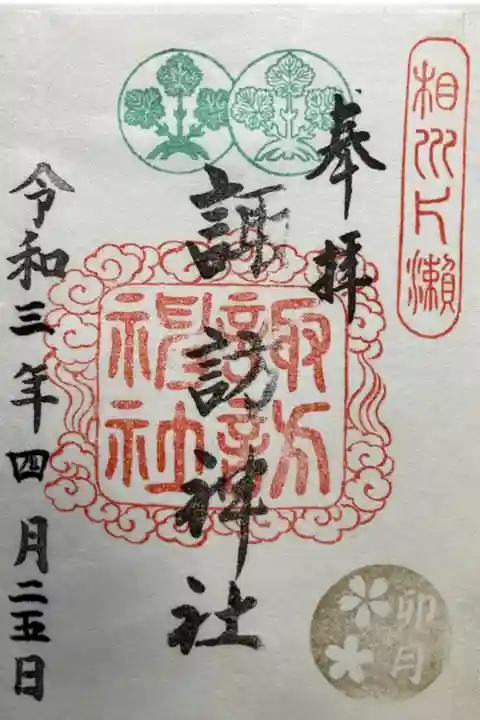 相州片瀬
奉拝
諏訪神社
諏訪神社
卯月
令和三年四月二五日